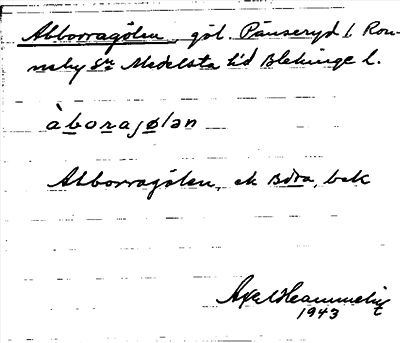 Abborragölen, göl Pänseryd i Ron-
neby sn Medelsta hd Blekinge l.
àborajølən
Abborragölen, ek Bdra, bek
Axel Hammelin
1943